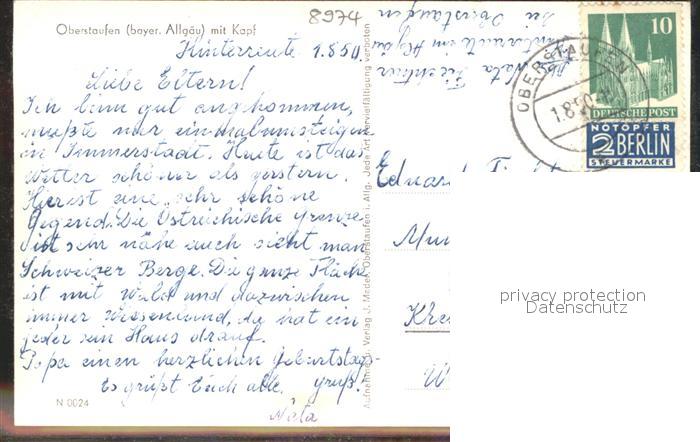 8974
Oberstaufen (bayer. Allgäu) mit Kapf
Hinterreute 1.8.50.
Liebe Eltern!
Ich bin gut angkommen,
mußte nur einmal umsteigen
in Immerstadt. Heute ist das
Wetter schöner als gerstern.
Hier ist eine sehr schöne
Gegend. Die Östreichische Grenze
ist sehr nähe auch sieht man
Schweizer Berge. Die ganze Fläche
ist mit Wald und dazwischen
immer Wiesen und, da hat ein
jeder sein Haus drauf.
Papa einen herzlichen Geburtstags-
Es grüßt Euch alle. gruß.
Nata
N 0024
Aufnahme u. Verlag J. Meder, Oberstaufen i. Allg. Jede Art Vervielfältigung verboten
Nata
bei Oberstaufen
OBERSTAUFEN
1.8.50
10
DEUTSCHE POST
NOTOPFER
2 BERLIN
STEUERMARKE
Eduard
privacy protection
Datenschutz